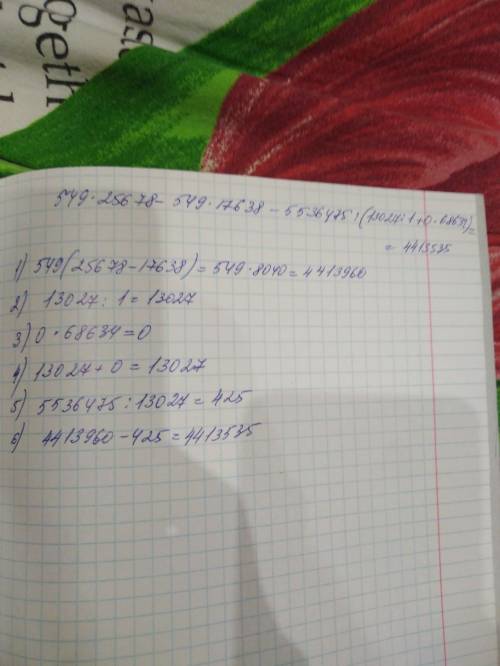 ogeth
549 · 25678 - 549 · 17638 - 5536475 : (13027 : 1 + 0 · 68634) =
= 4413535
1) 549 (25678 - 17638) = 549 · 8040 = 4413960
2) 13027 : 1 = 13027
3) 0 · 68634 = 0
4) 13027 + 0 = 13027
5) 5536475 : 13027 = 425
6) 4413960 - 425 = 4413535